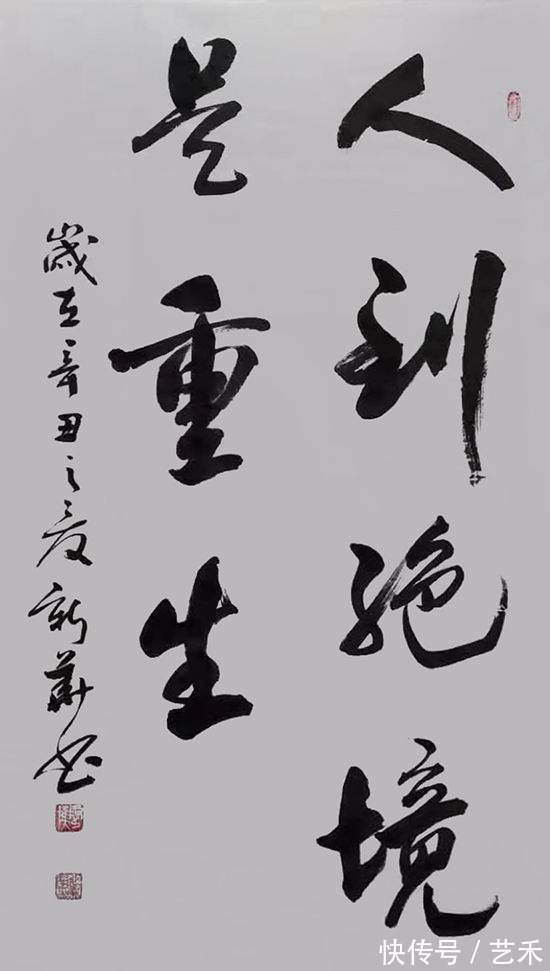 人到绝境
是重生
歲在辛丑之夏新華书
快传号/艺禾